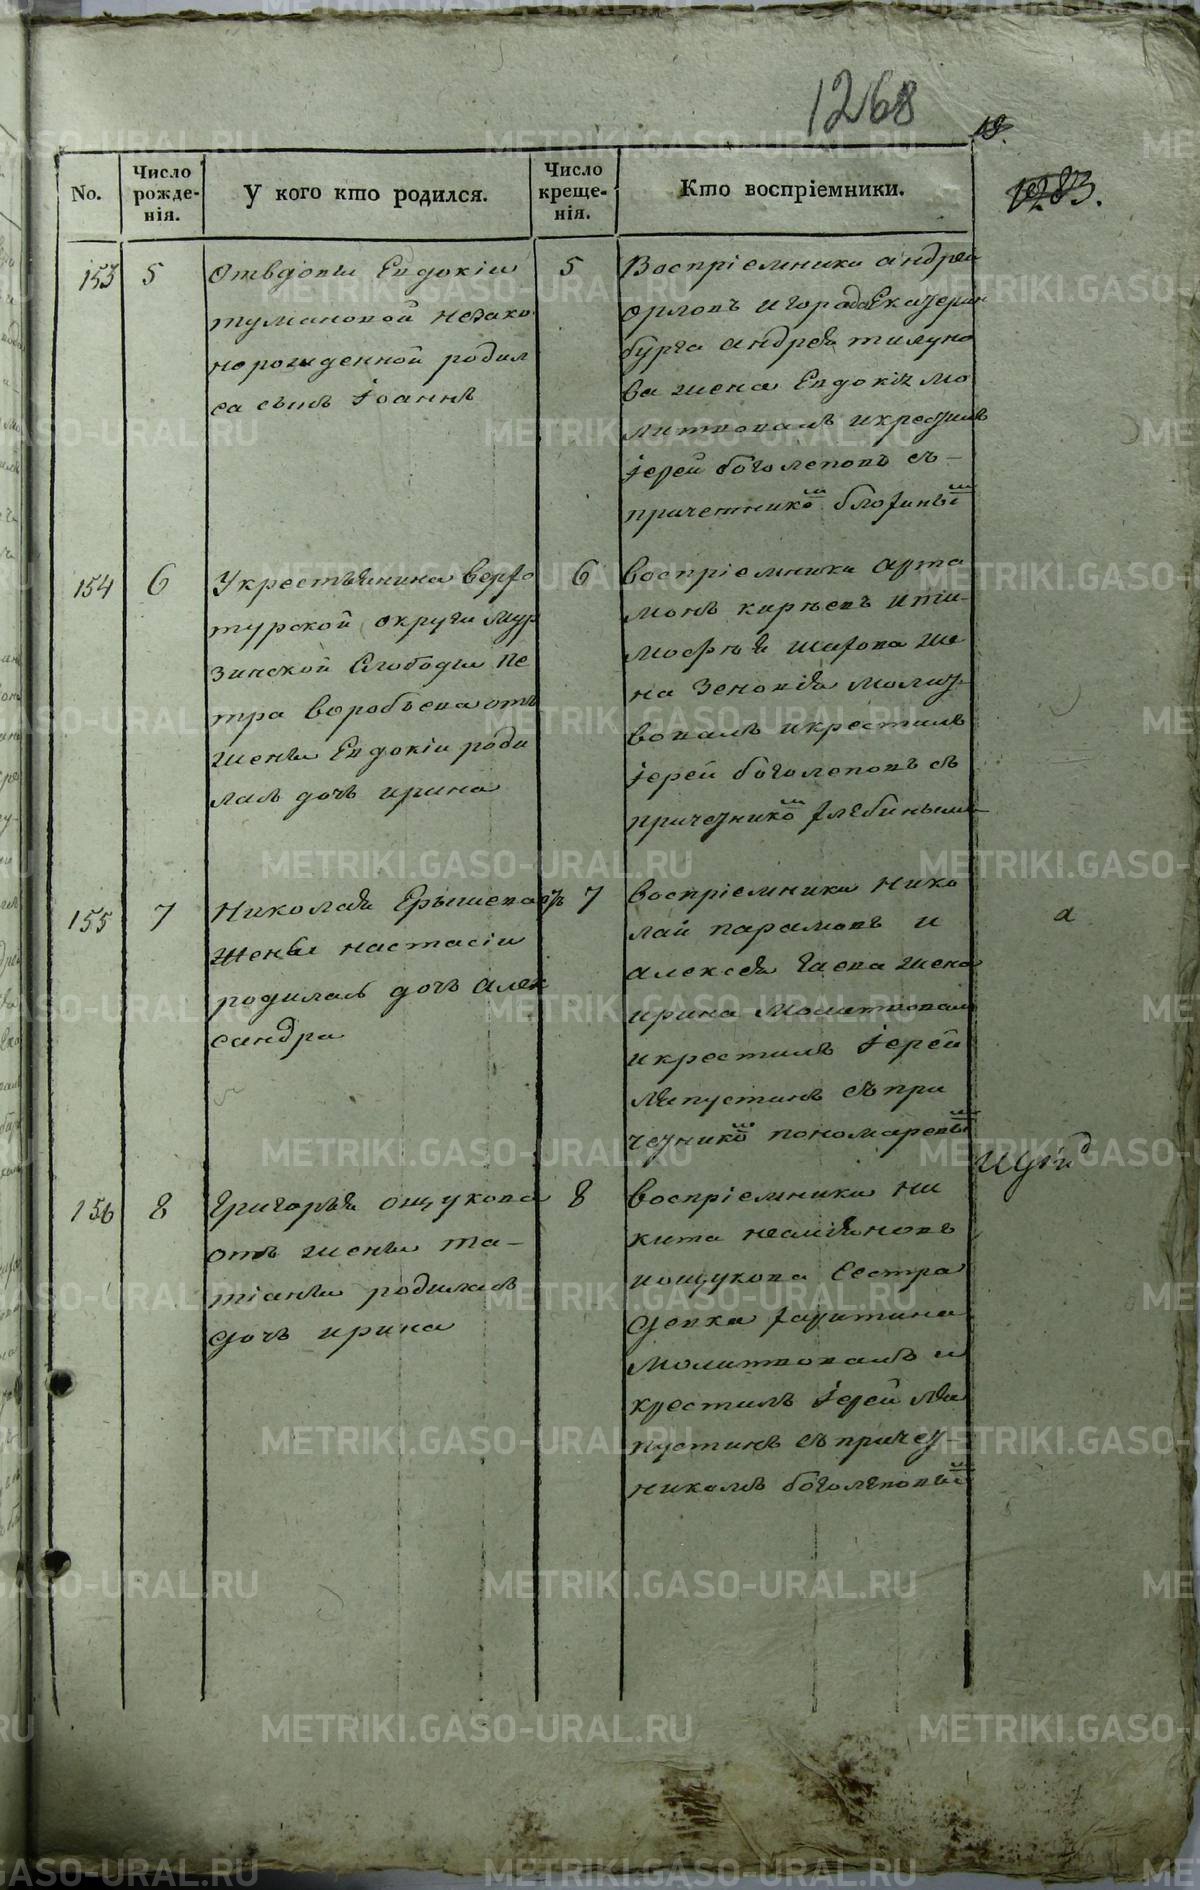 1268
19.
1283.
No.
Число
рожде-
нія.
У кого кто родился.
Число
креще-
нія.
Кто воспріемники.
153
5
Отвдовы Евдокіи
тумановой незако
норожденной родил
са сынъ Іоаннъ
5
Воспріемники андрей
орловъ игорода Екатерин
бурга андрея
ва жена Евдокія мо
литвовалъ икрестилъ
іерей боголеповъ съ
причетнико
154
6
Укрестьянина верхо
турской округи мур
зинской Слободы пе
тра воробьева отъ
жены Евдокіи роди
лась дочь ирина
6
воспріемники арта
монъ
жена
на Зеновія молит
вовалъ икрестилъ
іерей боголеповъ съ
причетнико
155
7
Николая Ерышева отъ
жены настасіи
родилась дочь алек
сандра
7
воспріемники нико
лай парамовъ и
алексея гаева жена
ирина молитвовалъ
икрестилъ іерей
ляпустинъ съ при
четнико пономаревы
156
8
Григорья ощукова
отъ жены та-
тіаны родилась
дочь ирина
8
воспріемники ни
кита
иощукова сестра
девка
молитвовалъ и
крестилъ іерей ля
пустинъ съ причет
никамъ боголеповы
METRIKI.GASO-URAL.RU